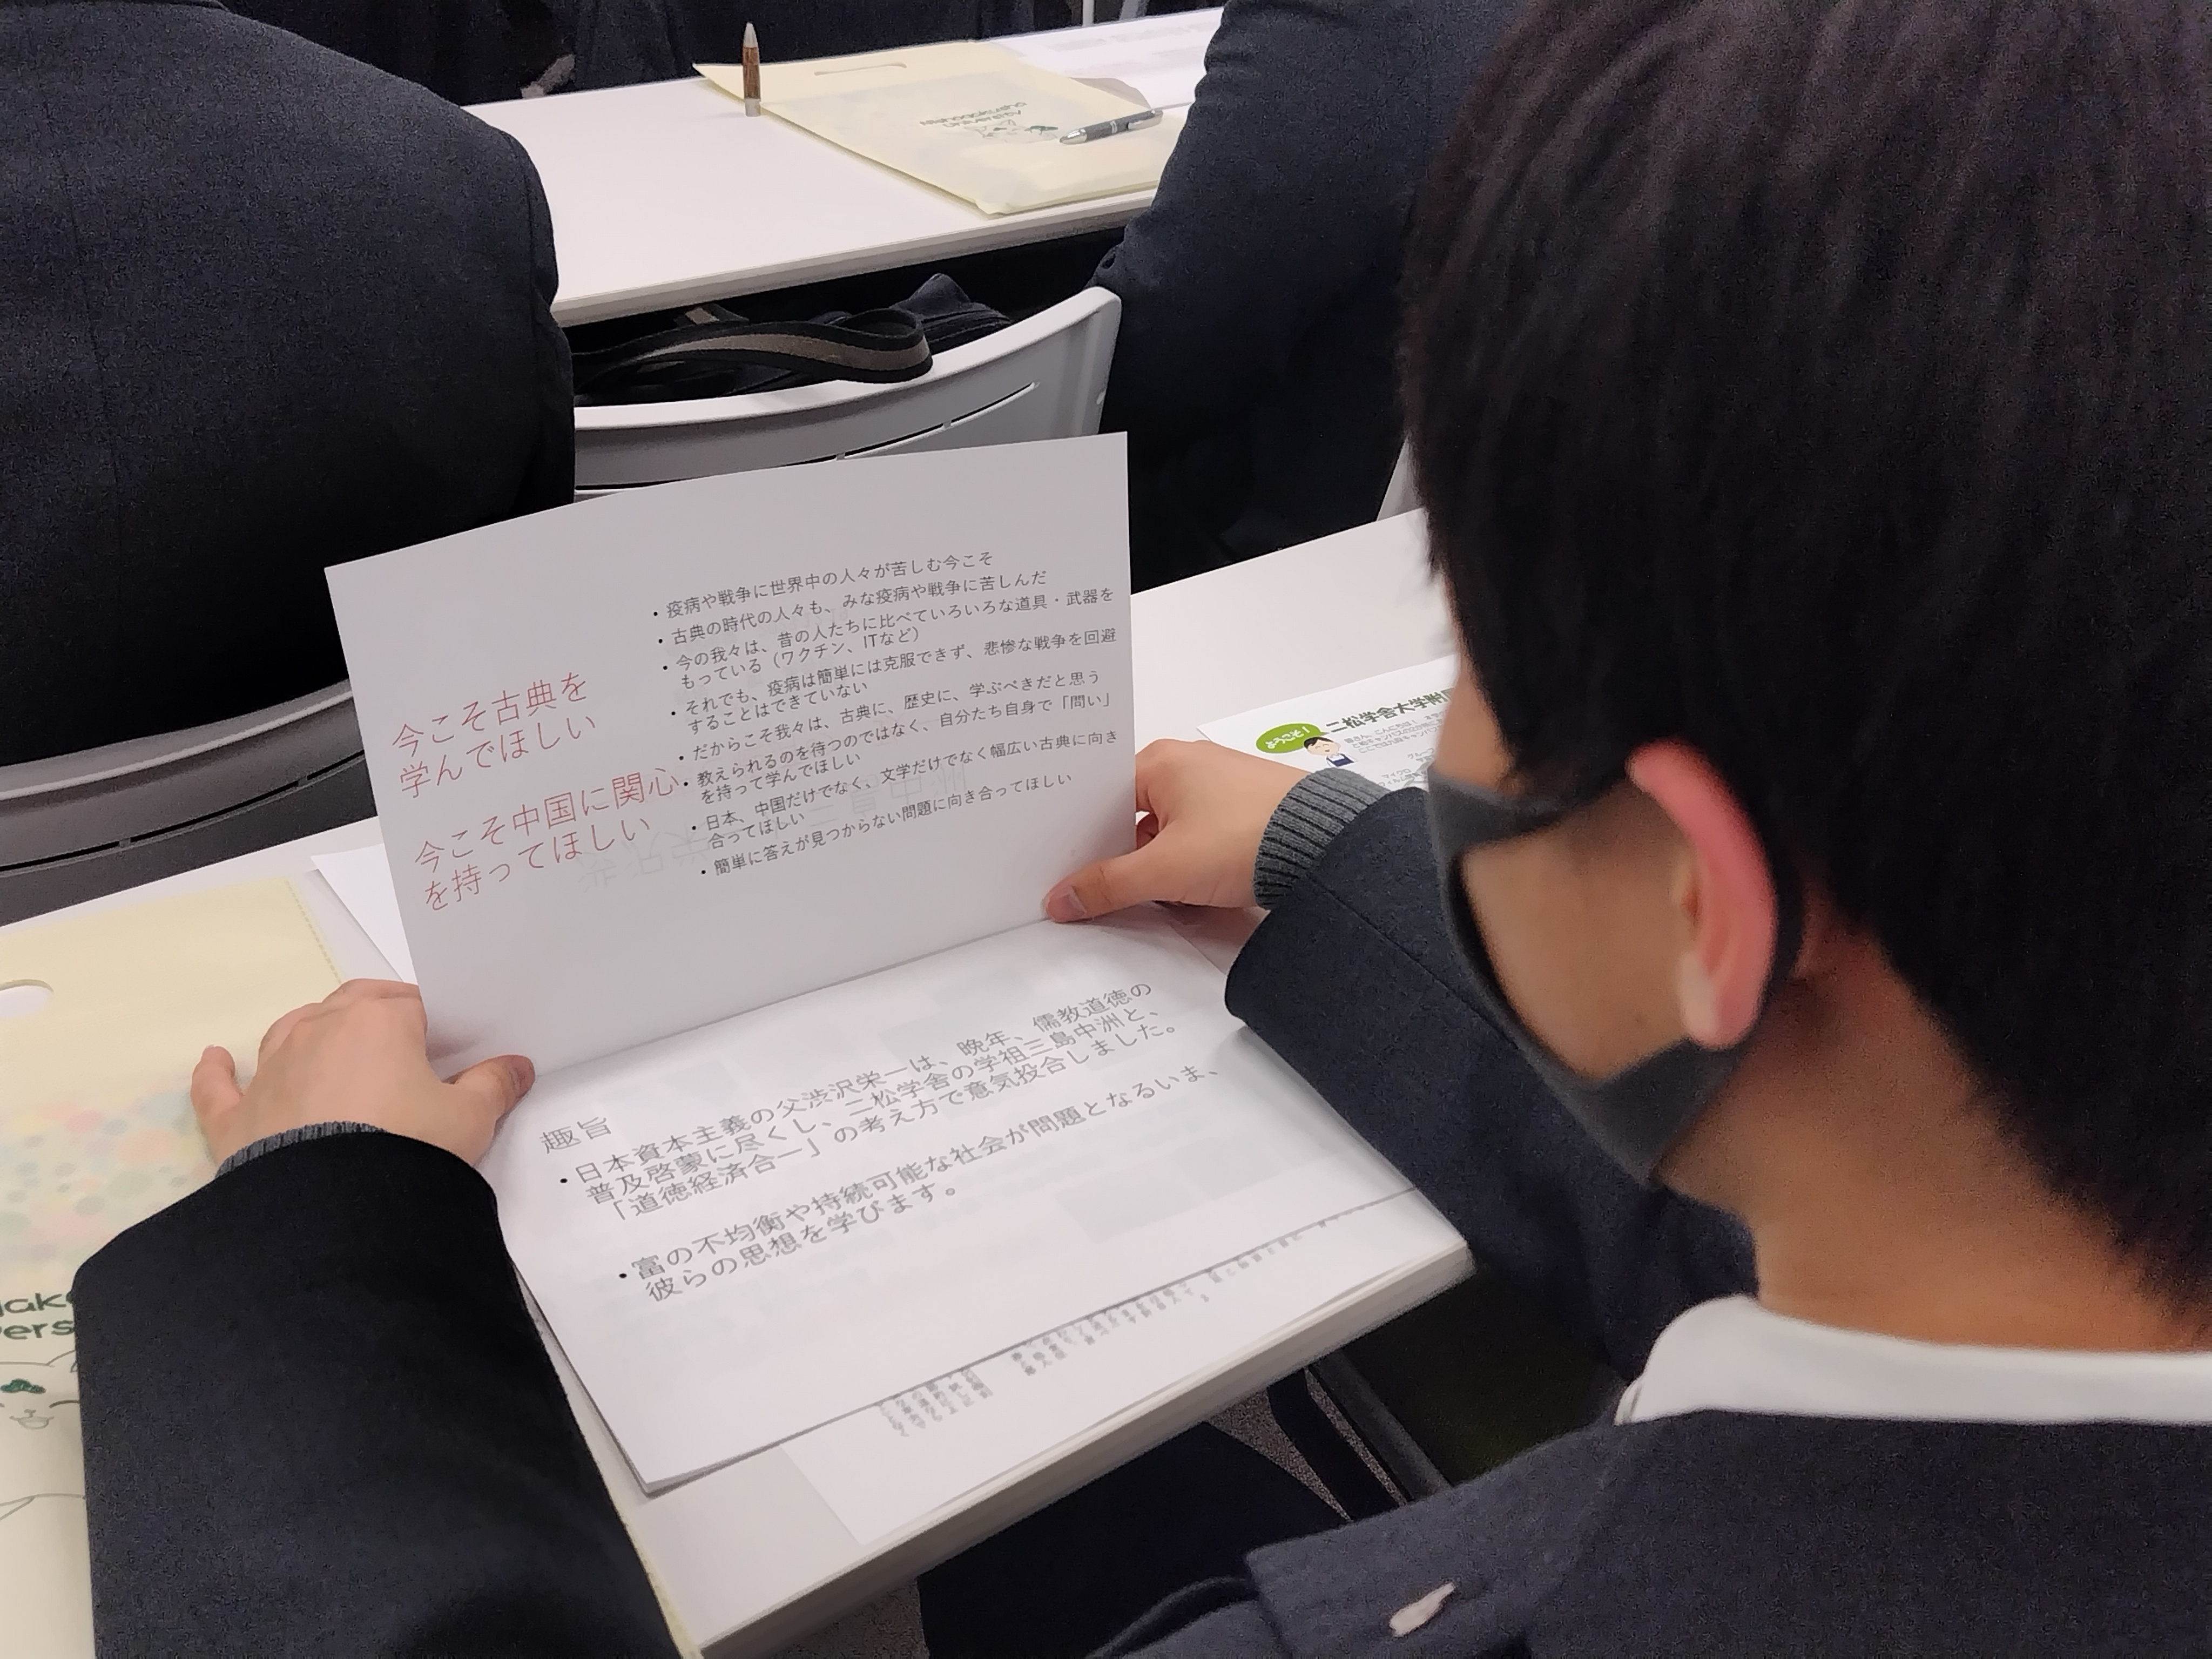 Nishogakusha
University
今こそ古典を
学んでほしい
今こそ中国に関心
を持ってほしい
・疫病や戦争に世界中の人々が苦しむ今こそ
・古典の時代の人々も、みな疫病や戦争に苦しんだ
・今の我々は、昔の人たちに比べていろいろな道具・武器を
もっている（ワクチン、ITなど）
・それでも、疫病は簡単には克服できず、悲惨な戦争を回避
することはできていない
・だからこそ我々は、古典に、歴史に、学ぶべきだと思う
・教えられるのを待つのではなく、自分たち自身で「問い」
を持って学んでほしい
・日本、中国だけでなく、文学だけでなく幅広い古典に向き
合ってほしい
・簡単に答えが見つからない問題に向き合ってほしい
ようこそ！
二松学舎大学附
趣旨
・日本資本主義の父渋沢栄一は、晩年、儒教道徳の
普及啓蒙に尽くし、二松学舎の学祖三島中洲と、
「道徳経済合一」の考え方で意気投合しました。
・富の不均衡や持続可能な社会が問題となるいま、
彼らの思想を学びます。